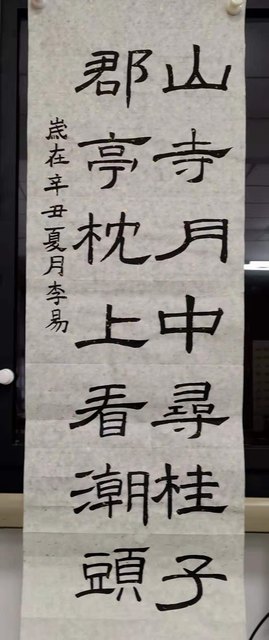 山寺月中尋桂子
郡亭枕上看潮頭
歲在辛丑夏月李易